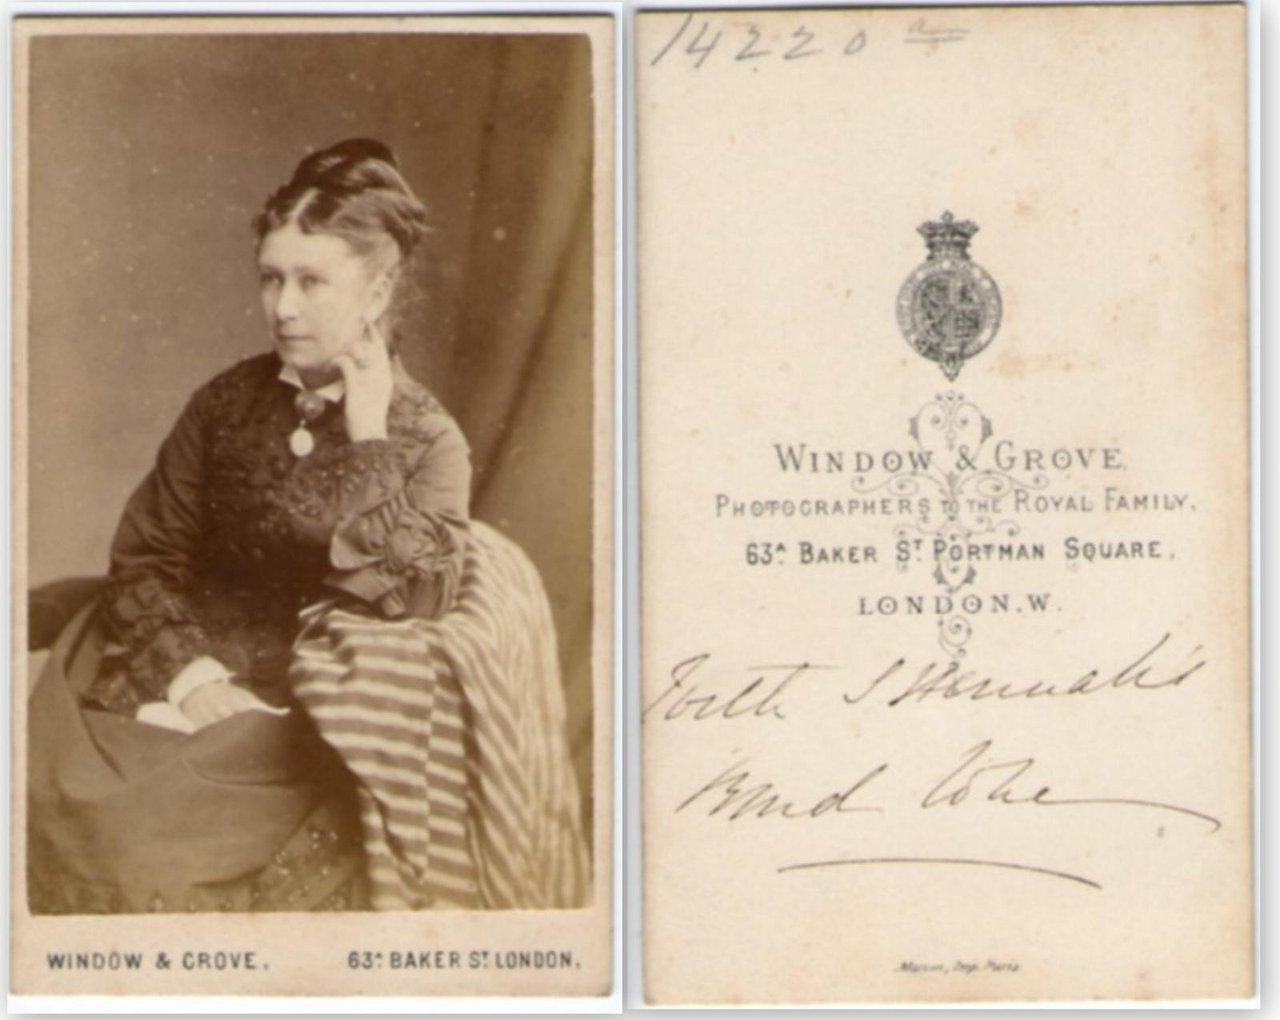 WINDOW & GROVE,
63A BAKER ST. LONDON,
14220 a
WINDOW & GROVE,
PHOTOGRAPHERS TO THE ROYAL FAMILY,
63A BAKER ST PORTMAN SQUARE,
LONDON.W.
With
kind love
Marion, Imp. Paris